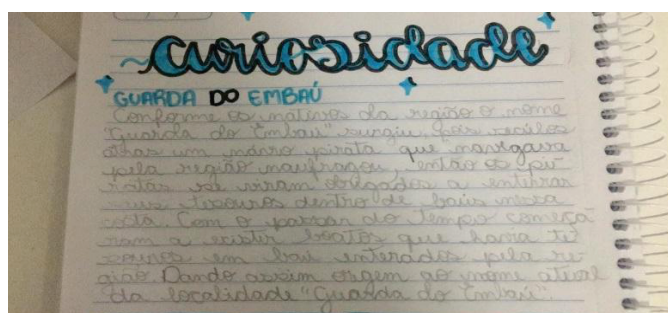 ~curiosidade
GUARDA DO EMBAÚ
Conforme os nativos da região o nome
"Guarda do Embaú" surgiu, pois séculos
atrás um navio pirata que navegava
pela região naufragou, então os pi-
ratas se viram obrigados a enterrar
seus tesouros dentro de baús nessa
costa. Com o passar do tempo começa
ram a existir boatos que havia te
souros em baú enterados pela re-
gião. Dando assim origem ao nome atual
da localidade "Guarda do Embaú".